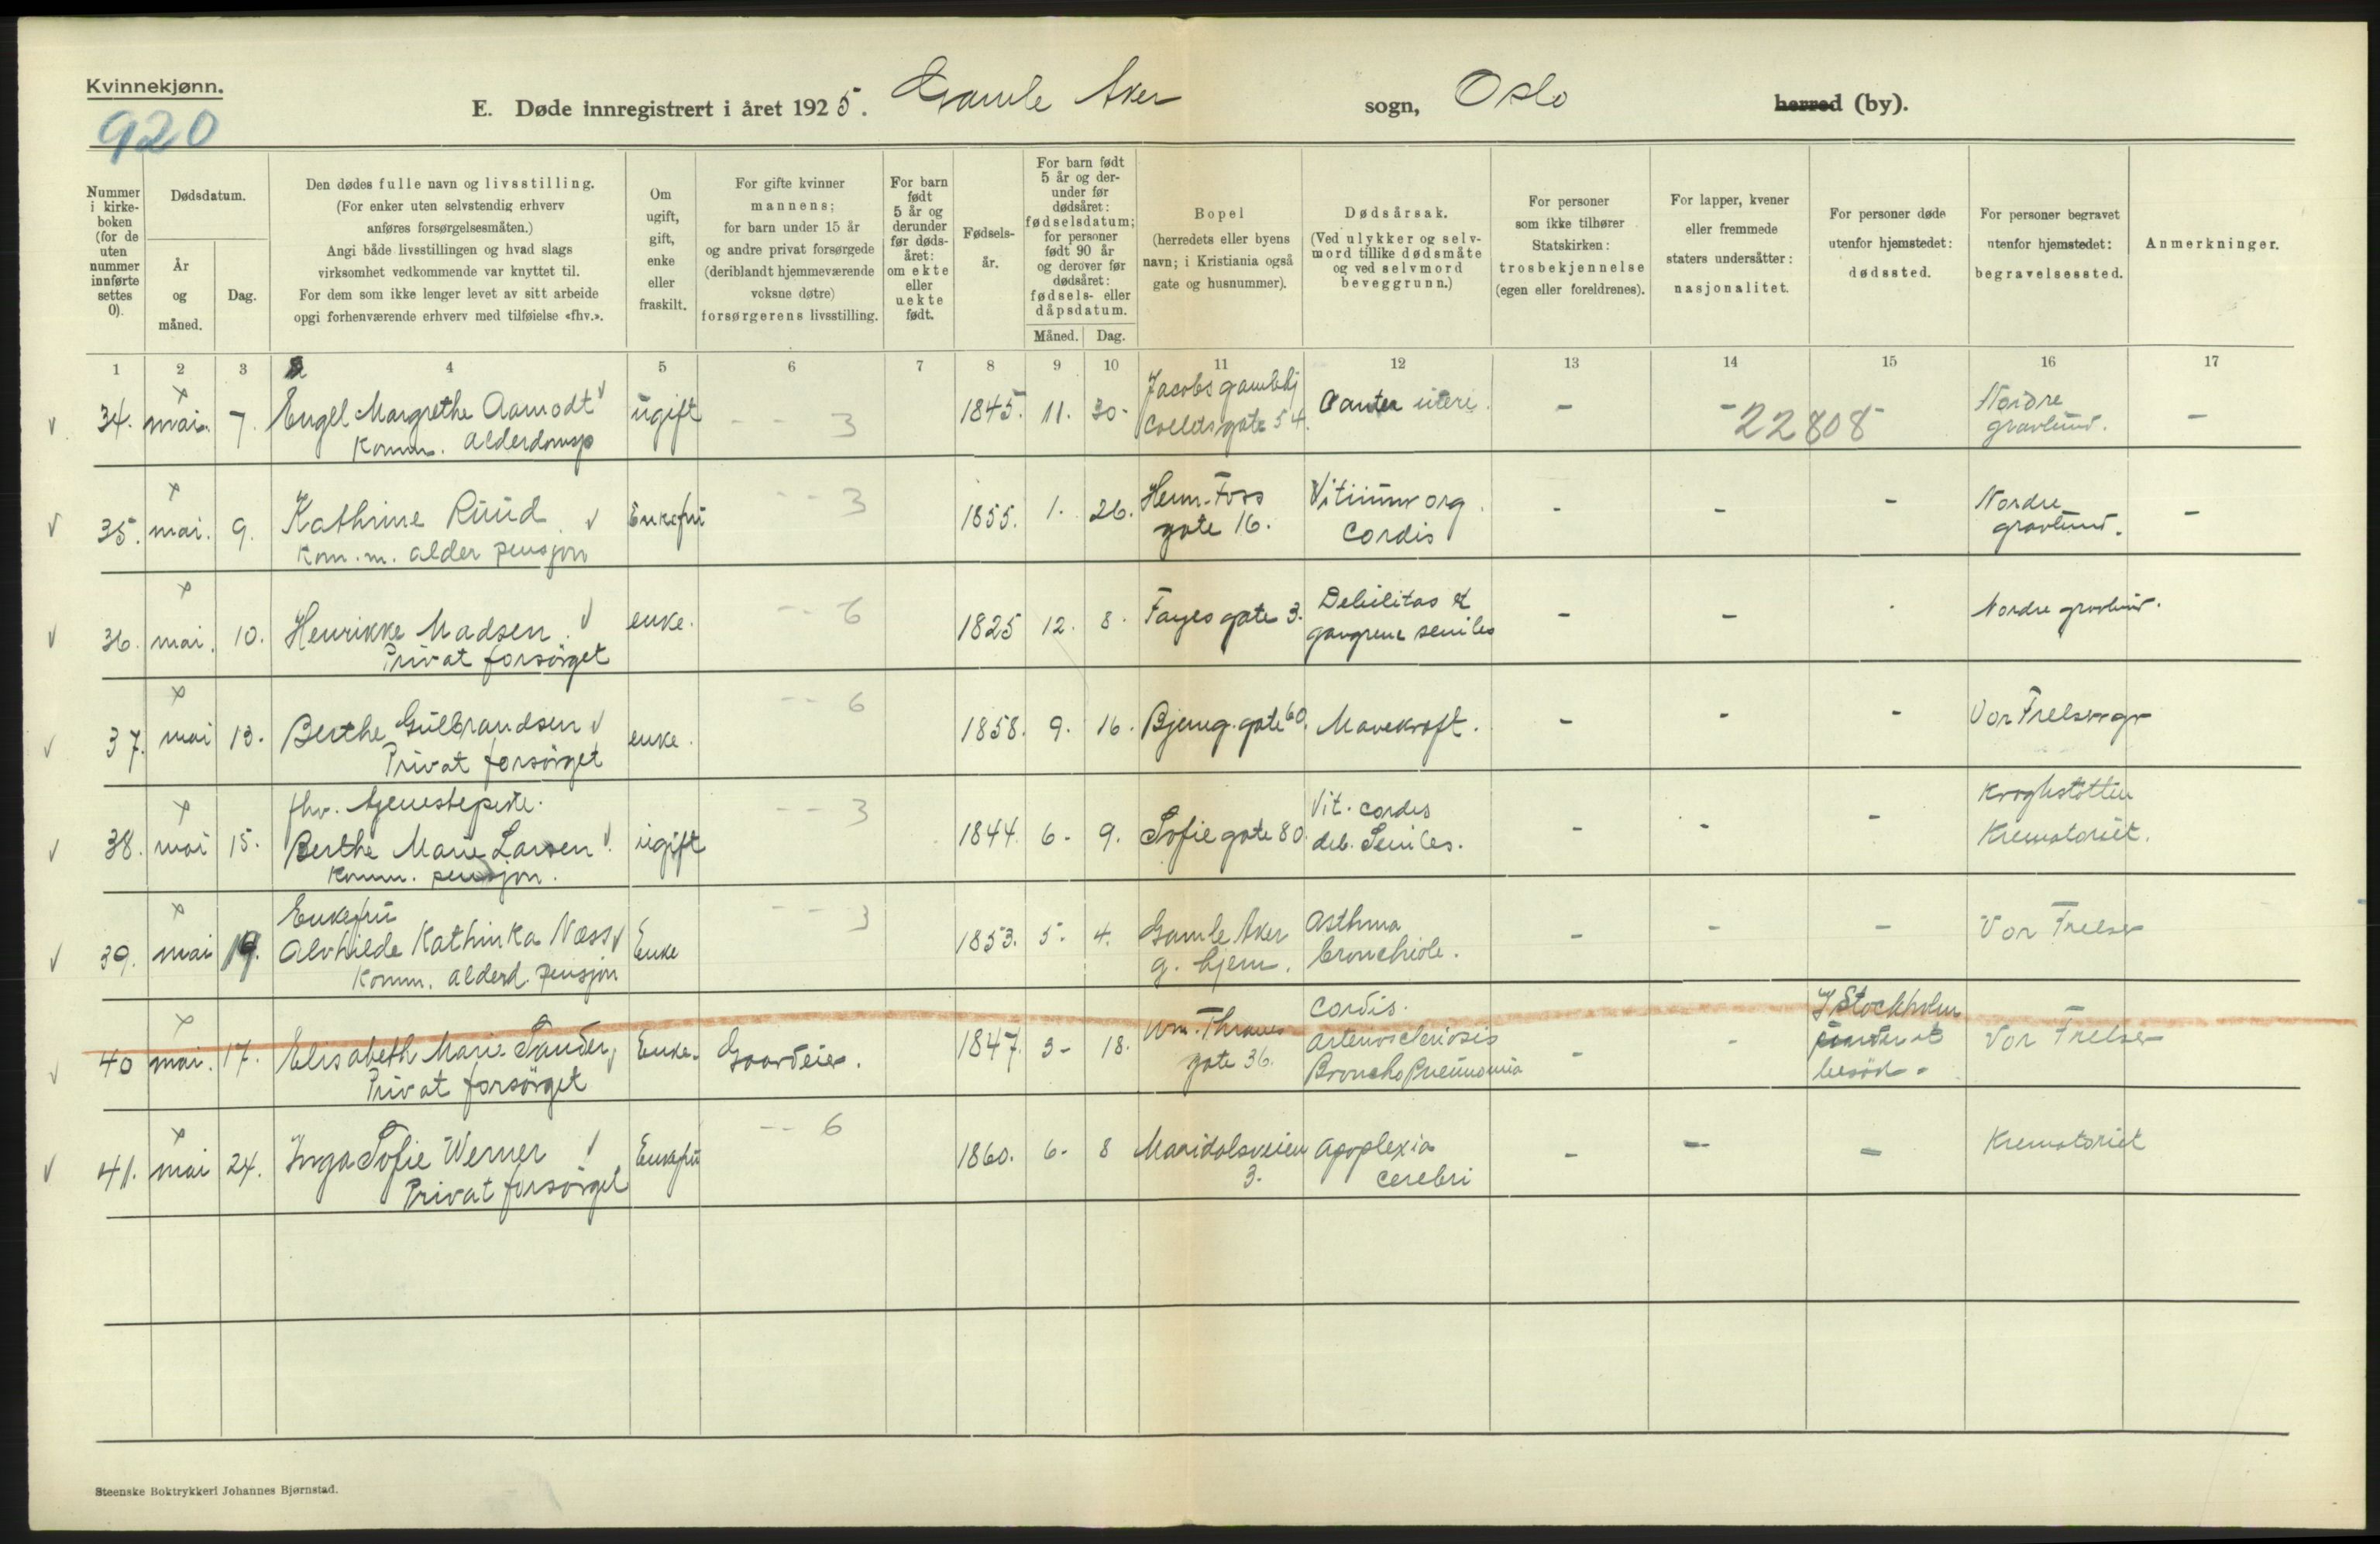 Kvinnekjønn.
920
E. Døde innregistrert i året 1925. Gamle Aker sogn, Oslo herred (by).
Nummer i kirkeboken (for de uten nummer innførte settes 0).
Dødsdatum.
År og måned.
Dag.
Den dødes fulle navn og livsstilling.
(For enker uten selvstendig erhverv
anføres forsørgelsesmåten.)
Angi både livsstillingen og hvad slags
virksomhet vedkommende var knyttet til.
For dem som ikke lenger levet av sitt arbeide
opgi forhenværende erhverv med tilføielse «fhv.».
Om ugift, gift, enke eller fraskilt.
For gifte kvinner
mannens;
for barn under 15 år
og andre privat forsørgede
(deriblandt hjemmeværende
voksne døtre)
forsørgerens livsstilling.
For barn født 5 år og derunder før dødsåret: om ekte eller uekte født.
Fødselsår.
For barn født 5 år og derunder før dødsåret: fødselsdatum; for personer født 90 år og derover før dødsåret: fødsels- eller dåpsdatum.
Måned. Dag.
Bopel
(herredets eller byens
navn; i Kristiania også
gate og husnummer).
Dødsårsak.
(Ved ulykker og selvmord tillike dødsmåte
og ved selvmord
beveggrunn.)
For personer
som ikke tilhører
Statskirken:
trosbekjennelse
(egen eller foreldrenes).
For lapper, kvener
eller fremmede
staters undersåtter:
nasjonalitet.
For personer døde
utenfor hjemstedet:
dødssted.
For personer begravet
utenfor hjemstedet:
begravelsessted.
Anmerkninger.
1 2 3 4 5 6 7 8 9 10 11 12 13 14 15 16 17
34. mai. 7. Engel Margrethe Aamodt ugift - - 3 1845. 11. 30 - Jacobs gamlehj Colletsgate 54. Canter uteri. - - 22808 - Nordre gravlund. -
Komm. alderdomsp
35. mai. 9. Kathrine Ruud Enkefru - - 3 1855. 1. 26. Herm. Foss gate 16. Vitium org. Cordis - - - Nordre gravlund. -
Kom. m. alder pensjon
36. mai. 10. Henrikke Madsen enke. - - 6 1825 12. 8. Fayes gate 3. Debilitas & gangrene seniles - - Nordre gravlund.
Privat forsörget
37. mai 13. Berthe Gulbrandsen enke. - - 6 1858. 9. 16. Bjerreg. gate 60. Mavekræft. - - - Vor Frelser gr
Privat forsörget
fhv. tjenestepike.
38. mai 15. Berthe Marie Larsen ugift - - 3 1844. 6 - 9. Sofie gate 80. Vit. cordis deb. Seniles. - - - Kroghstötten Krematoriet.
Komm. pensjon.
Enkefru
39. mai 19. Alvhilde Kathinka Næss Enke - - 3 1853. 5. 4. Gamle Aker g. hjem. Asthma bronchiole. - - - Vor Frelser
Komm. alderd. pensjon
40 mai. 17. Elisabeth Marie Sander, Enke. Gaardeier. 1847. 3 - 18. Wm. Thranes gate 36. Cordis. Arterioscleriosis Broncho Pneumonia - - I Stockholm under et besök. Vor Frelser
Privat forsörget
41. mai 24. Inga Sofie Werner Enkefru - - 6 1860. 6 - 8 Maridalsveien 3. Apoplexia cerebri - - - Krematoriet
Privat forsörget
Steenske Boktrykkeri Johannes Bjørnstad.